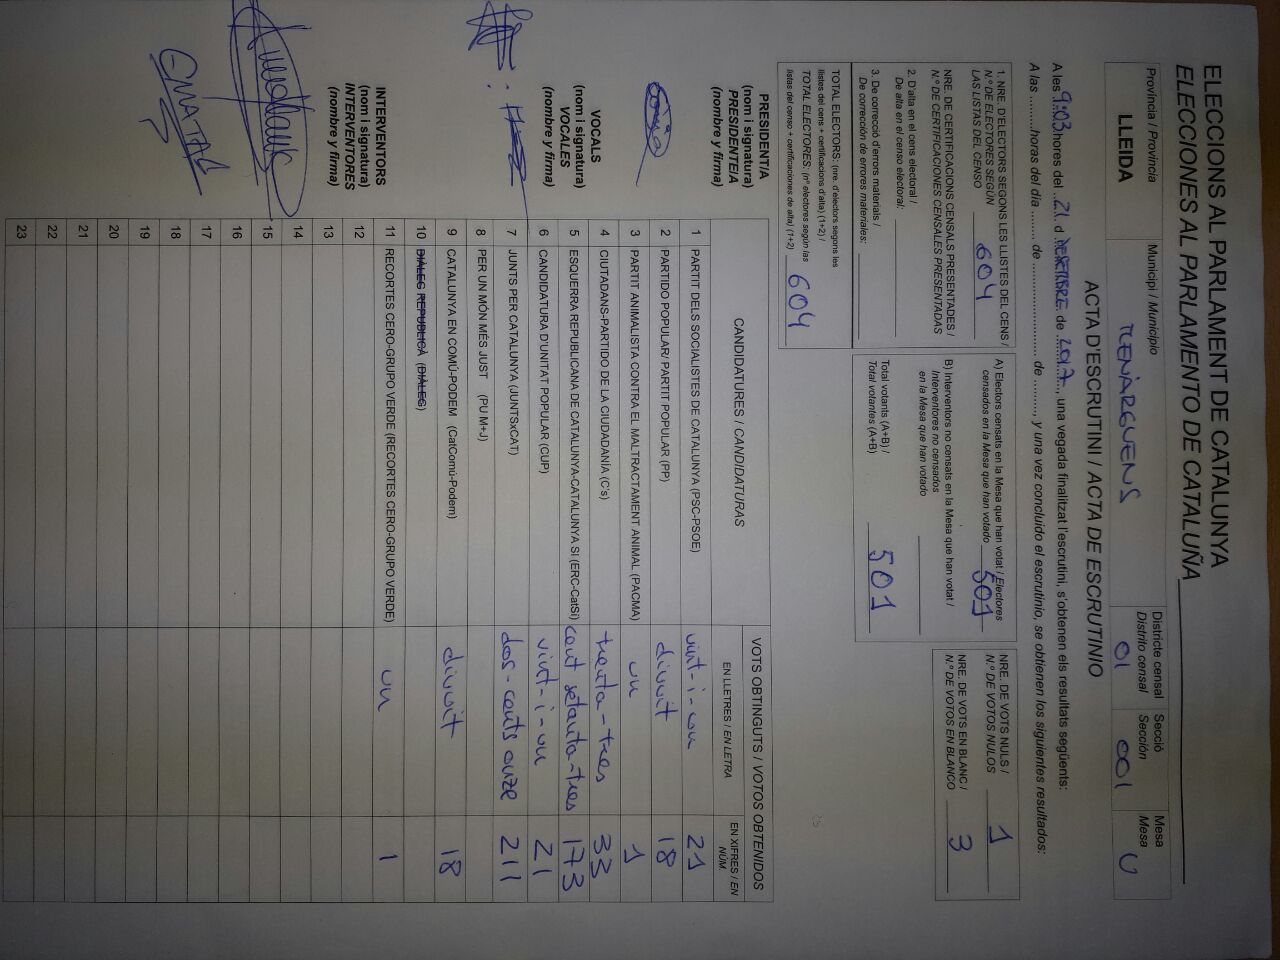 ELECCIONS AL PARLAMENT DE CATALUNYA
ELECCIONES AL PARLAMENTO DE CATALUÑA
Província / Provincia
LLEIDA
Municipi / Municipio
TÉRMENS
Districte censal
Distrito censal
01
Secció
Sección
001
Mesa
Mesa
U
ACTA D'ESCRUTINI / ACTA DE ESCRUTINIO
A les 9:03 hores del 21 d de 2017, una vegada finalitzat l'escrutini, s'obtenen els resultats següents:
A las ......... horas del día ....... de ..................... de ........., y una vez concluido el escrutinio, se obtienen los siguientes resultados:
1. NRE D'ELECTORS SEGONS LES LLISTES DEL CENS /
N.º DE ELECTORES SEGÚN
LAS LISTAS DEL CENSO 604
NRE. DE CERTIFICACIONS CENSALS PRESENTADES /
N.º DE CERTIFICACIONES CENSALES PRESENTADAS
2. D'alta en el cens electoral /
De alta en el censo electoral:
3. De correcció d'errors materials /
De corrección de errores materiales:
TOTAL ELECTORS: (nre. d'electors segons les
llistes del cens + certificacions d'alta) (1+2) /
TOTAL ELECTORES: (nº electores según las
listas del censo + certificaciones de alta) (1+2) 604
A) Electors censats en la Mesa que han votat / Electores
censados en la Mesa que han votado 501
B) Interventors no censats en la Mesa que han votat /
Interventores no censados
en la Mesa que han votado
Total votants (A+B) /
Total votantes (A+B) 501
NRE. DE VOTS NULS /
N.º DE VOTOS NULOS 1
NRE. DE VOTS EN BLANC /
N.º DE VOTOS EN BLANCO 3
CANDIDATURES / CANDIDATURAS
VOTS OBTINGUTS / VOTOS OBTENIDOS
EN LLETRES / EN LETRA
EN XIFRES / EN NÚM.
1 PARTIT DELS SOCIALISTES DE CATALUNYA (PSC-PSOE) vint-i-un 21
2 PARTIDO POPULAR/ PARTIT POPULAR (PP) divuit 18
3 PARTIT ANIMALISTA CONTRA EL MALTRACTAMENT ANIMAL (PACMA) un 1
4 CIUTADANS-PARTIDO DE LA CIUDADANÍA (C's) trenta-tres 33
5 ESQUERRA REPUBLICANA DE CATALUNYA-CATALUNYA SÍ (ERC-CatSí) cent setanta-tres 173
6 CANDIDATURA D'UNITAT POPULAR (CUP) vint-i-un 21
7 JUNTS PER CATALUNYA (JUNTSxCAT) dos-cents onze 211
8 PER UN MÓN MÉS JUST (PU M+J)
9 CATALUNYA EN COMÚ-PODEM (CatComú-Podem) divuit 18
10 DIÀLEG REPUBLICÀ (DIÀLEG)
11 RECORTES CERO-GRUPO VERDE (RECORTES CERO-GRUPO VERDE) un 1
12
13
14
15
16
17
18
19
20
21
22
23
PRESIDENT/A
(nom i signatura)
PRESIDENTE/A
(nombre y firma)
VOCALS
(nom i signatura)
VOCALES
(nombre y firma)
INTERVENTORS
(nom i signatura)
INTERVENTORES
(nombre y firma)